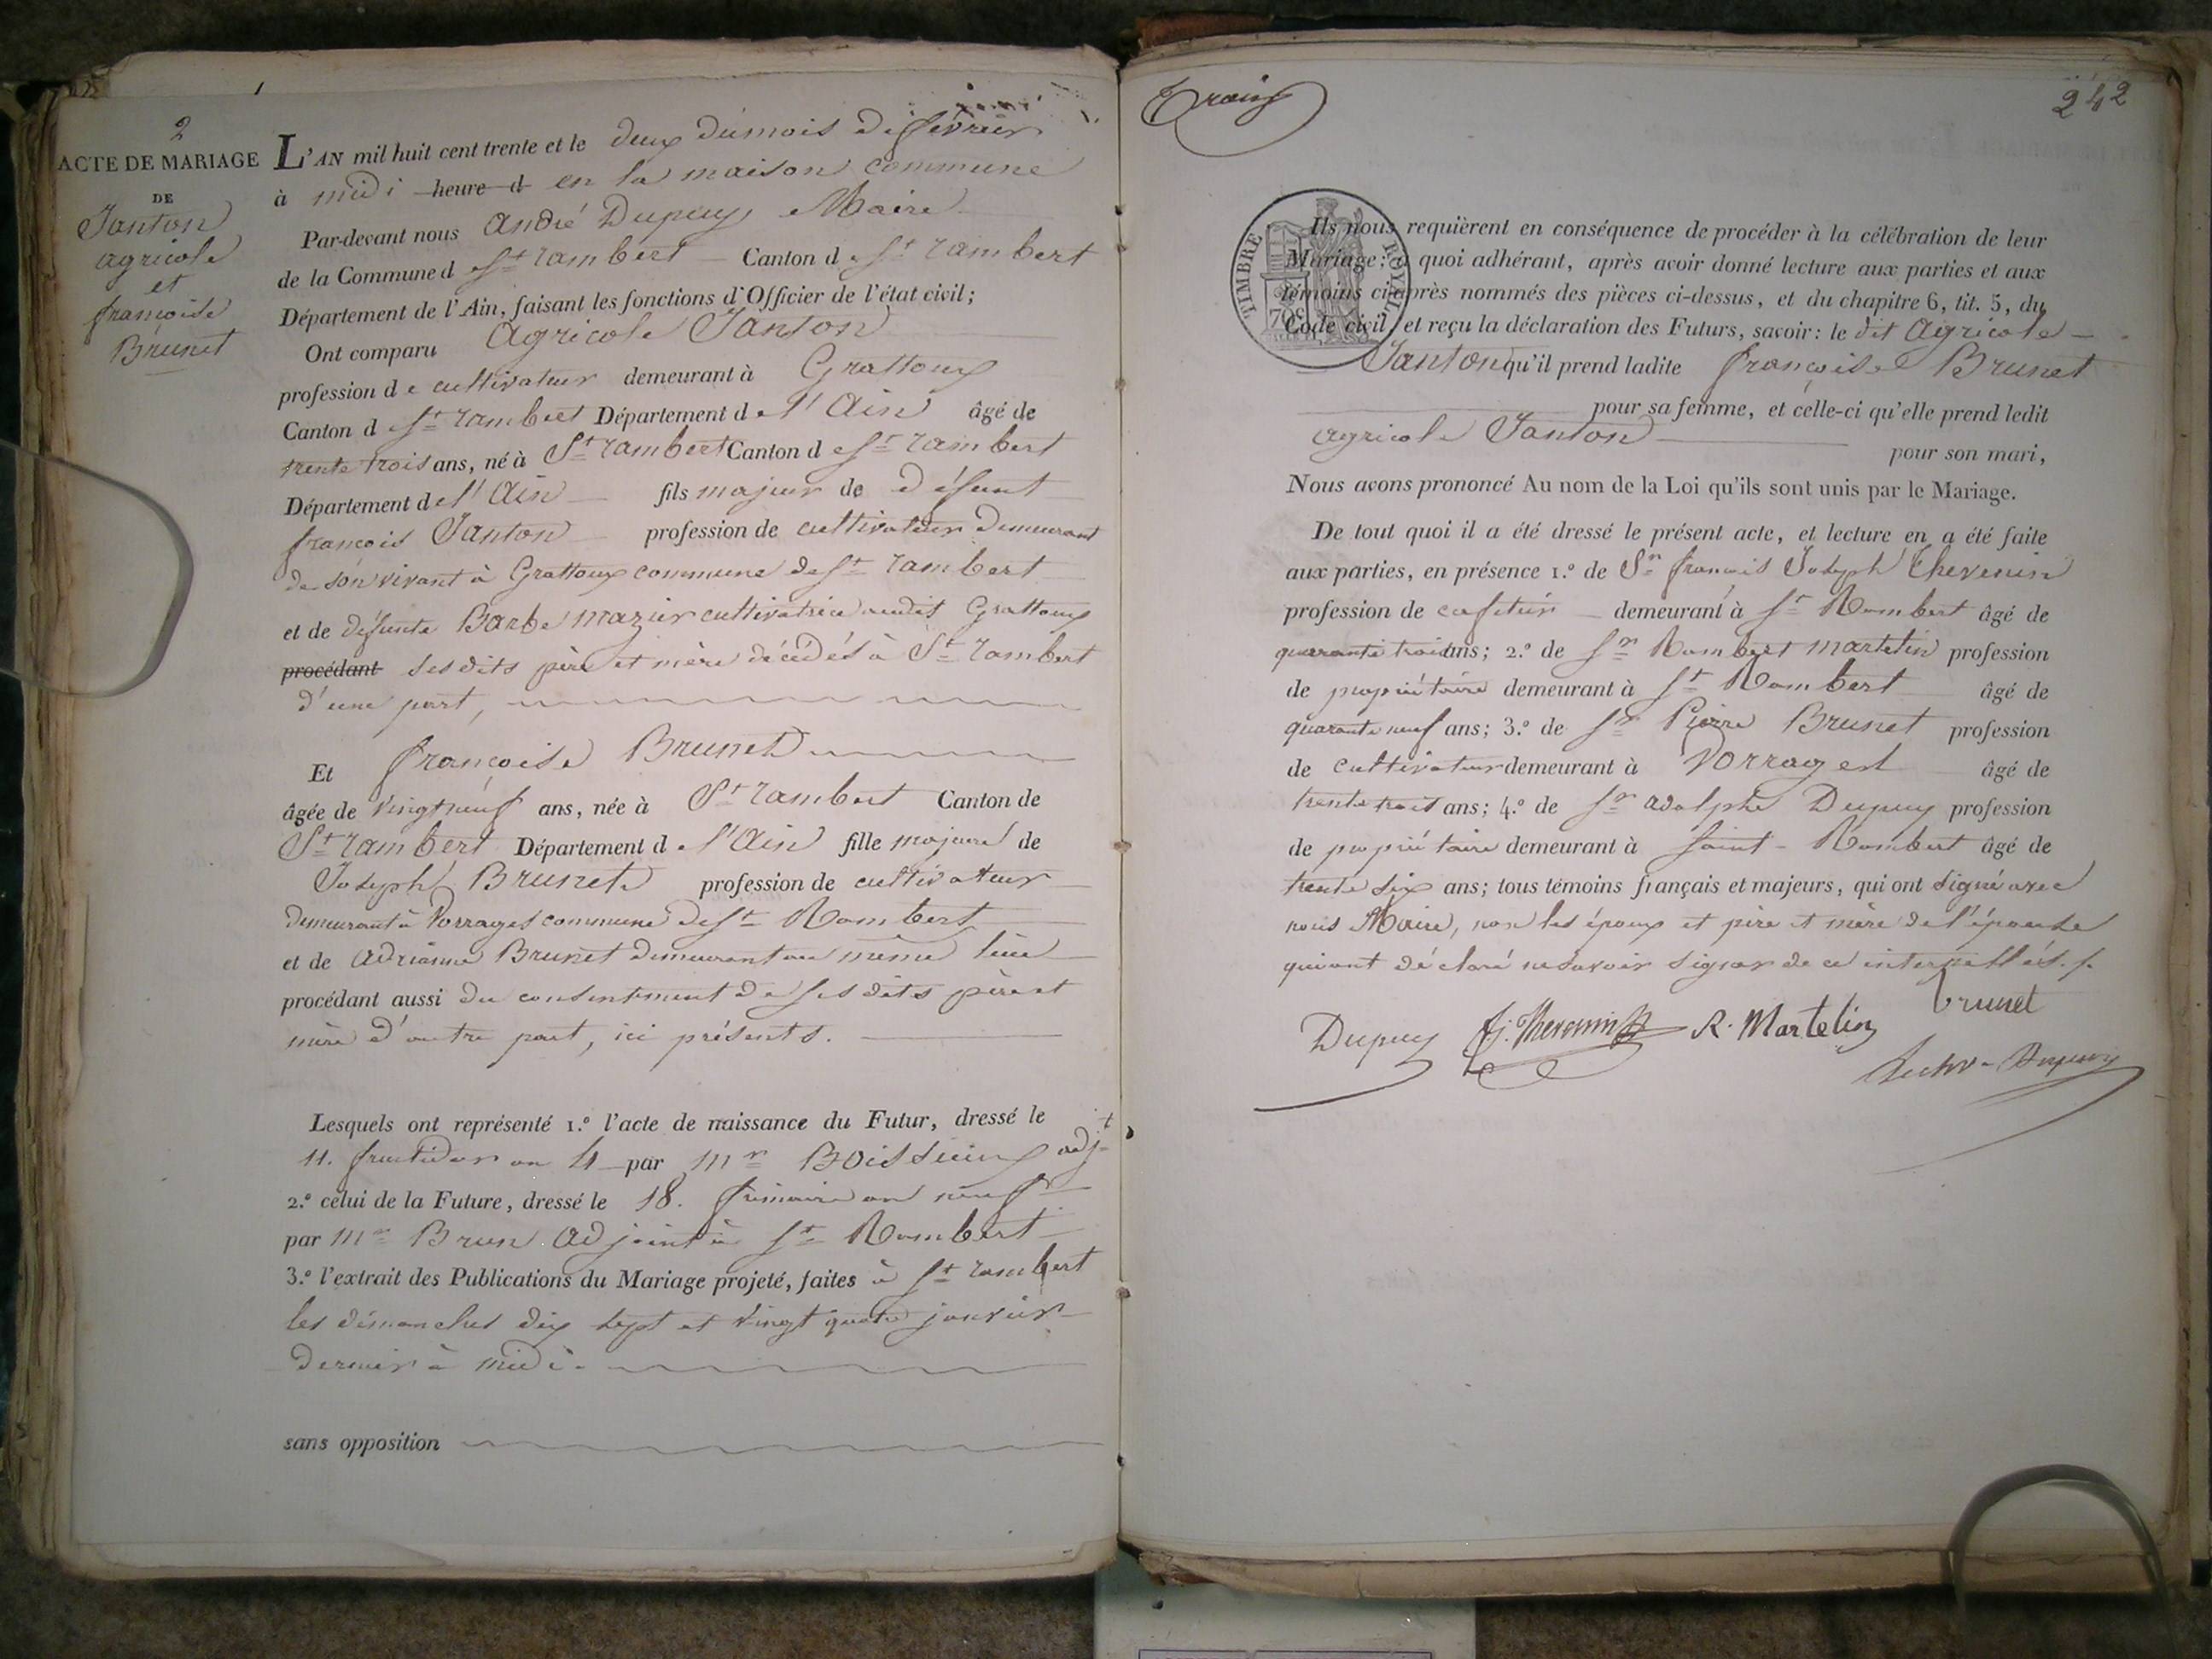 2
ACTE DE MARIAGE
DE
Janton
agricole
et
françoise
Brunet
L'AN mil huit cent trente et le deux du mois de février
à midi heure d en la maison commune
Par-devant nous André Dupuy, Maire
de la Commune de St rambert Canton de St rambert
Département de l'Ain, faisant les fonctions d'Officier de l'état civil;
Ont comparu Agricole Janton
profession de cultivateur demeurant à Grattoux
Canton de St rambert Département de l'Ain âgé de
trente trois ans, né à St rambert Canton de St rambert
Département de l'Ain fils majeur de défunt
françois Janton profession de cultivateur demeurant
de son vivant à Grattoux commune de St rambert
et de défunte Barbe mazuir cultivatrice audit Grattoux
procédant ses dits père et mère décédés à St rambert
d'une part,
Et françoise Brunet
âgée de vingt neuf ans, née à St rambert Canton de
St rambert Département de l'Ain fille majeure de
Joseph Brunet profession de cultivateur
demeurant à Vorrages commune de St Rambert
et de Adrianne Brunet demeurant au même lieu
procédant aussi du consentement de ses dits père et
mère d'autre part, ici présents.
Lesquels ont représenté 1.º l'acte de naissance du Futur, dressé le
11. fructidor an 4 par Mr Boissieux adjt
2.º celui de la Future, dressé le 18. frimaire an neuf
par Mr Brun Adjoint à St Rambert
3.º l'extrait des Publications du Mariage projeté, faites à St rambert
les dimanches dix sept et vingt quatre janvier
dernier à midi.
sans opposition
Trois
242
TIMBRE ROYAL
70c
Ils nous requièrent en conséquence de procéder à la célébration de leur
Mariage; à quoi adhérant, après avoir donné lecture aux parties et aux
témoins ci-après nommés des pièces ci-dessus, et du chapitre 6, tit. 5, du
Code civil, et reçu la déclaration des Futurs, savoir: le dit Agricole
Janton qu'il prend ladite françoise Brunet
pour sa femme, et celle-ci qu'elle prend ledit
agricole Janton
pour son mari,
Nous avons prononcé Au nom de la Loi qu'ils sont unis par le Mariage.
De tout quoi il a été dressé le présent acte, et lecture en a été faite
aux parties, en présence 1.º de Sr françois Joseph Thevenin
profession de cafetier demeurant à St Rambert âgé de
quarante trois ans; 2.º de Sr Rambert martelin profession
de propriétaire demeurant à St Rambert âgé de
quarante neuf ans; 3.º de Sr Pierre Brunet profession
de cultivateur demeurant à Vorrages âgé de
trente trois ans; 4.º de Sr adolphe Dupuy profession
de propriétaire demeurant à Saint-Rambert âgé de
trente six ans; tous témoins français et majeurs, qui ont signé avec
nous Maire, non les époux et père et mère de l'épouse
qui ont déclaré ne savoir signer de ce interpellés.
Brunet
Dupuy fj. Thevenin R. Martelin
Dupuy